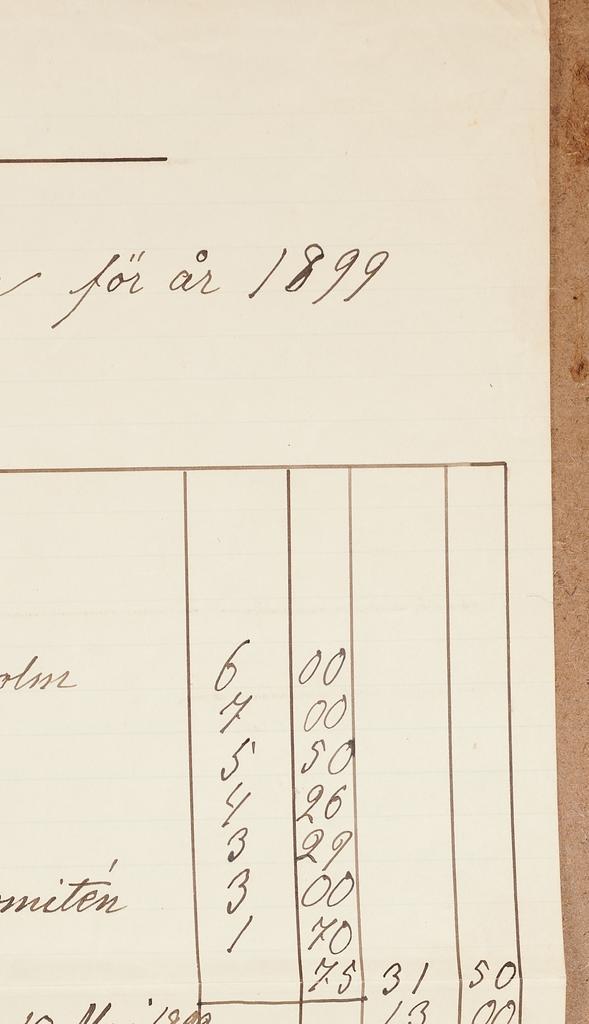 för år 1899
olm 6 00
7 00
5 50
4 26
3 29
omitén 3 00
1 70
75 31 50
13 00